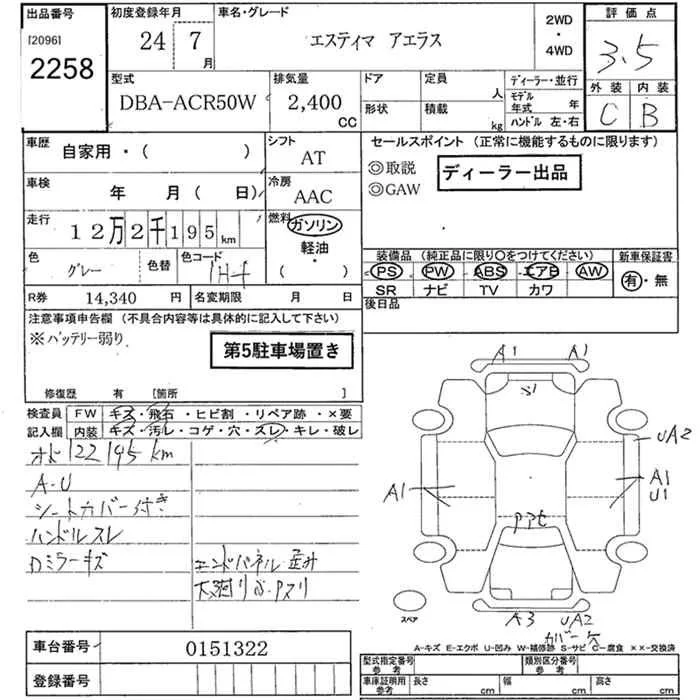 出品番号
[2096]
2258
初度登録年月
24 7
月
車名・グレード
エスティマ アエラス
2WD
・
4WD
評価点
3.5
外装 内装
C B
型式
DBA-ACR50W
排気量
2,400
CC
ドア
形状
定員
人
積載
kg
ディーラー・並行
モデル
年式 年
ハンドル 左・右
車歴
自家用・( )
シフト
AT
車検
年 月( 日)
冷房
AAC
走行
12万2千195km
燃料
ガソリン
軽油・
( )
色
グレー
色替
色コード
1H4
R券 14,340 円
名変期限 月 日
セールスポイント (正常に機能するものに限ります)
◎取説
◎GAW
ディーラー出品
装備品 (純正品に限り○をつけてください)
新車保証書
PS PW ABS エアB AW
SR ナビ TV カワ
有・無
後日品
注意事項申告欄 (不具合内容等は具体的に記入して下さい)
※バッテリー弱り
第5駐車場置き
修復歴 有 [箇所 ]
検査員
記入欄
FW キズ・飛石・ヒビ割・リペア跡・×要
内装 キズ・汚レ・コゲ・穴・スレ・キレ・破レ
オド122195km
A・U
シートカバー付き
ハンドルスレ
Dミラーキズ
エンドパネル歪み
A1 A1
S1
UA2
A1
A1
U1
A3 UA2
カバー欠
スペア
A-キズ E-エクボ U-凹み W-補修跡 S-サビ C-腐食 ××-交換済
車台番号 0151322
登録番号
型式指定番号
参考
類別区分番号
参考
車庫証明用
参考
長さ cm
幅 cm
高さ cm